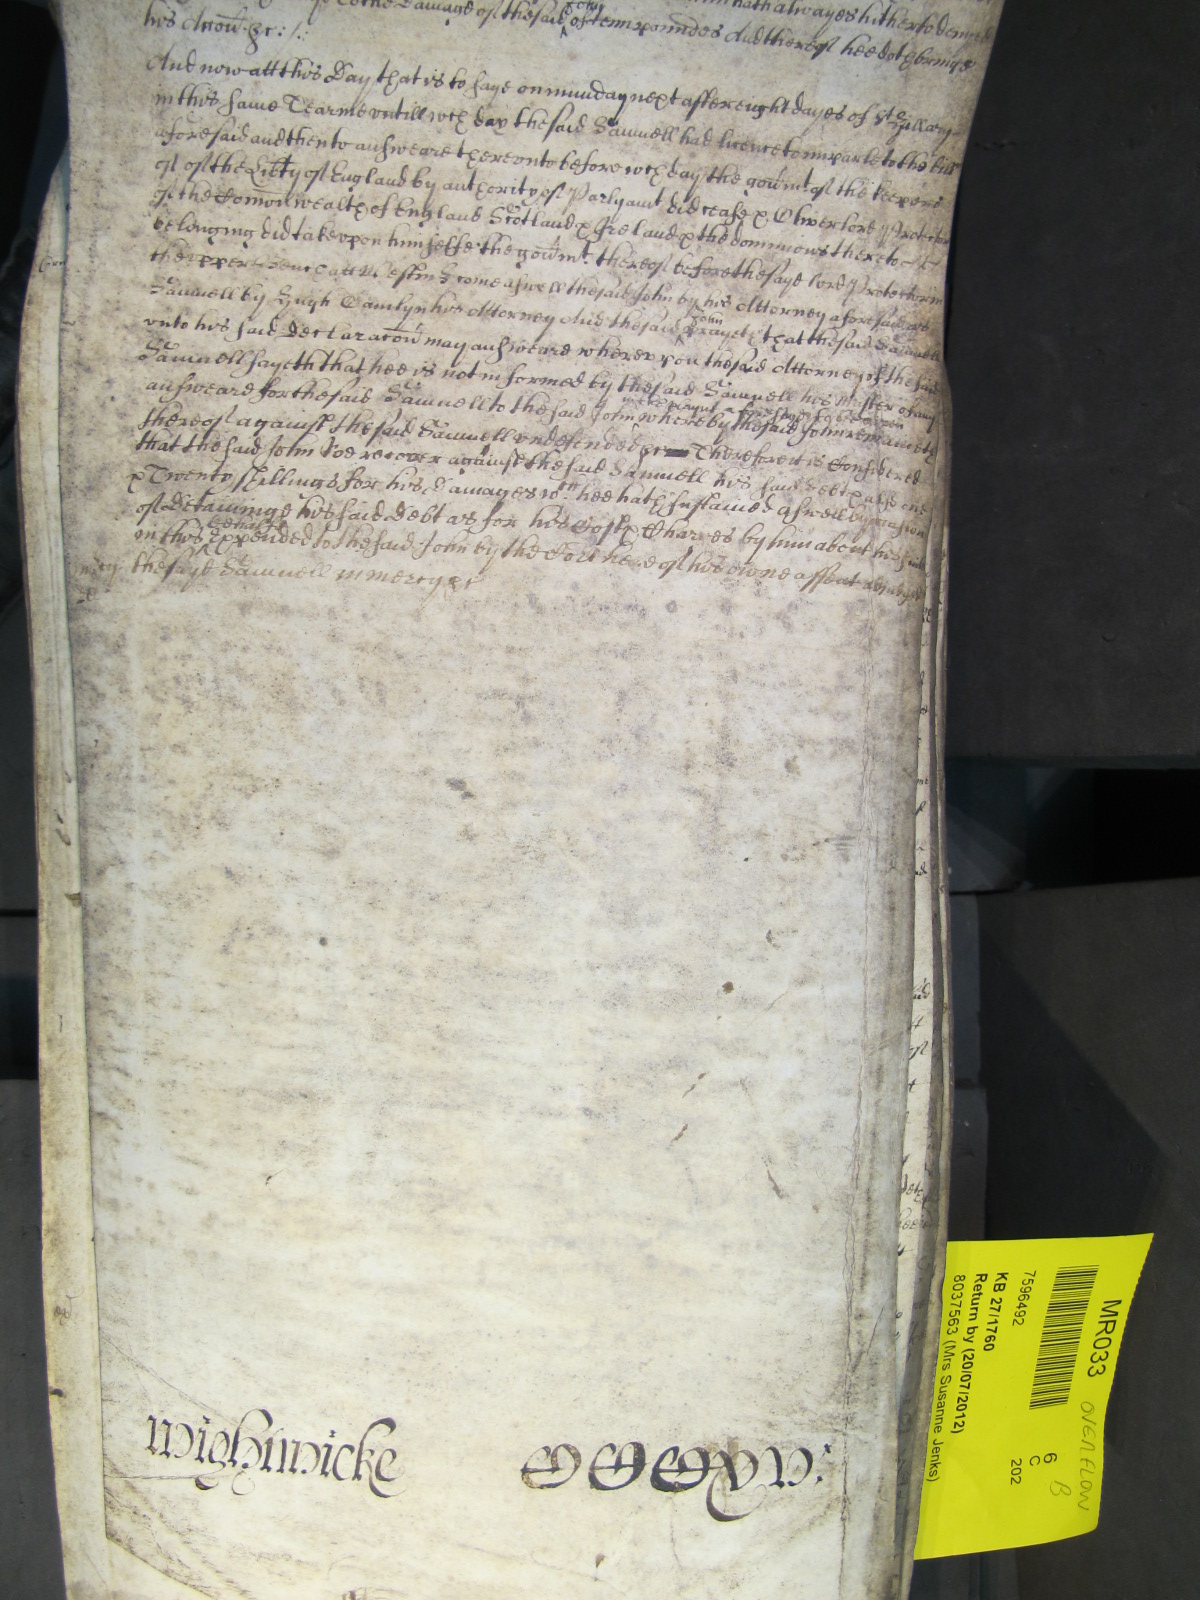 to the Damage of the said John of tenn poundes And thereof hee doth bringe
his Accōn &c:/:
And now att this Day that is to saye on munday next after eight dayes of St Hillary
in this same Tearme untill wch day the said Samuell had licence to imparle to the bill
aforesaid and then to answeare thereonto before wch day the govmt of the keepers
of the Libty of England by authority of Parlyamt did cease & Oliver lord Protector
of the Comonwealth of England Scotland & Ireland & the dominions thereto
belonging did take upon himselfe the govmt thereof before the saye lord Protector in
the upper Bench att Westm̄ come aswell the said John by his Attorney aforesaid as
Samuell by Hugh his Attorney And the said John prayeth that the said Samuell
unto his said Declaracōn may answeare whereupon the said Attorney of the said
Samuell sayeth that hee is not informed by the said Samuell his Master of any
answeare for the said Samuell to the said John whereby the said John remaineth
thereof against the said Samuell undefended &c Therefore it is Considered
that the said John doe recover against the said Samuell his said debt and one
& Twenty shillings for his damages wch hee hath sustained aswell by reason
of Detaininge his said Debt as for his Costs & Charges by him about his suite
in this behalfe Expended to the said John by the Cort here of his owne assent adiudged
mercy. the saye Samuell in mercy &c
Wightwicke
MR033
OVERFLOW
7596492
6
C
202
B
KB 27/1760
Return by (20/07/2012)
8037563 (Mrs Susanne Jenks)